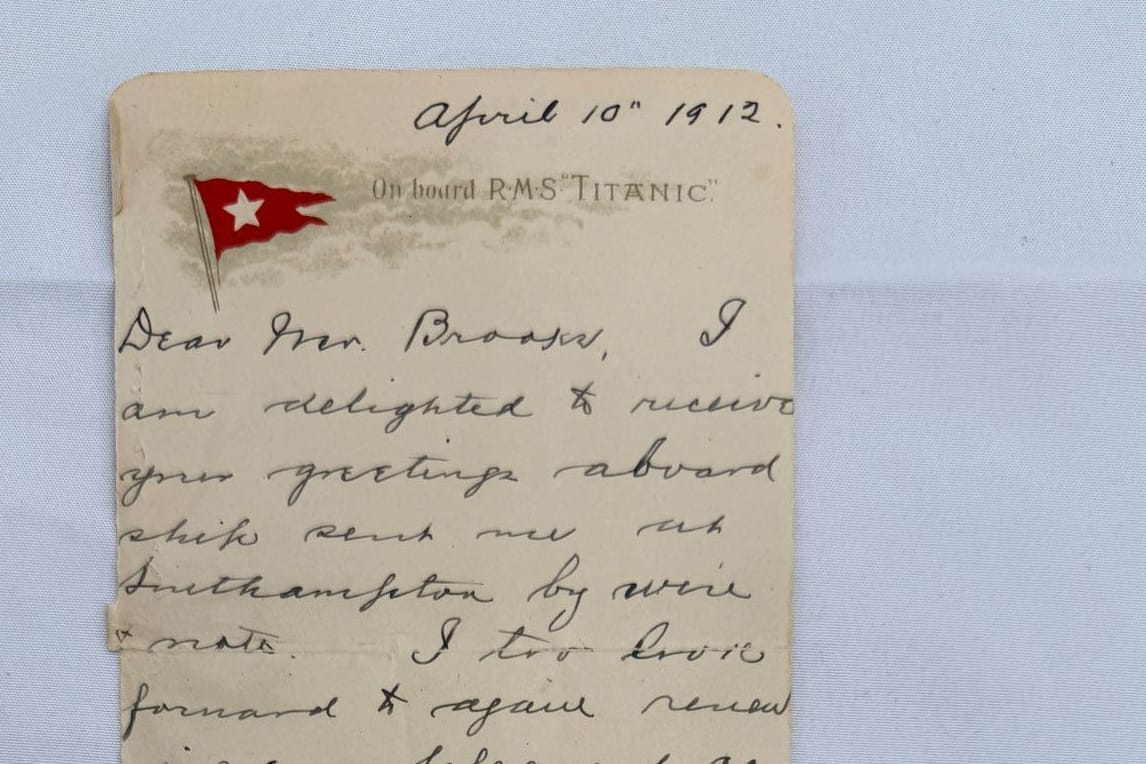 April 10" 1912.
On board R·M·S "TITANIC".
Dear Mr. Brooks, I
am delighted to receive
your greetings aboard
ship sent me at
Southampton by wire
& note. I too look
forward to again renew